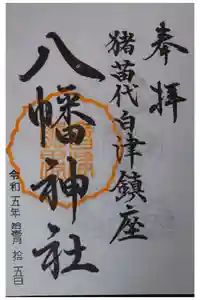 奉拝
猪苗代白津鎮座
八幡神社
令和五年 拾五日